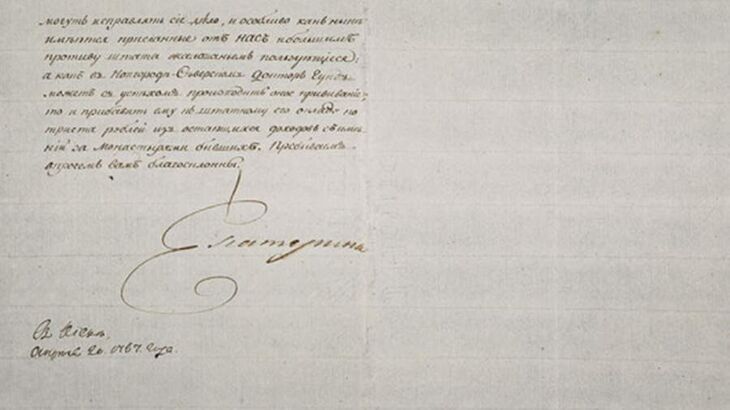 могутъ исправлять сіе дѣло, и особливо какъ нынѣ
имѣются присланные отъ НАСЪ и большимъ
противу штата жалованьемъ пользующіеся;
а какъ въ Новгородѣ-Сѣверскомъ Докторъ
можетъ съ успѣхомъ производить оное прививаніе,
то и прибавить ему къ штатному его окладу по
триста рублей изъ остающихся доходовъ съ имѣ-
ній за монастырями бывшихъ. Пребываемъ
впрочемъ вамъ благосклонны.
Екатерина
Въ Кіевѣ,
Апрѣля 20. 1787. года.